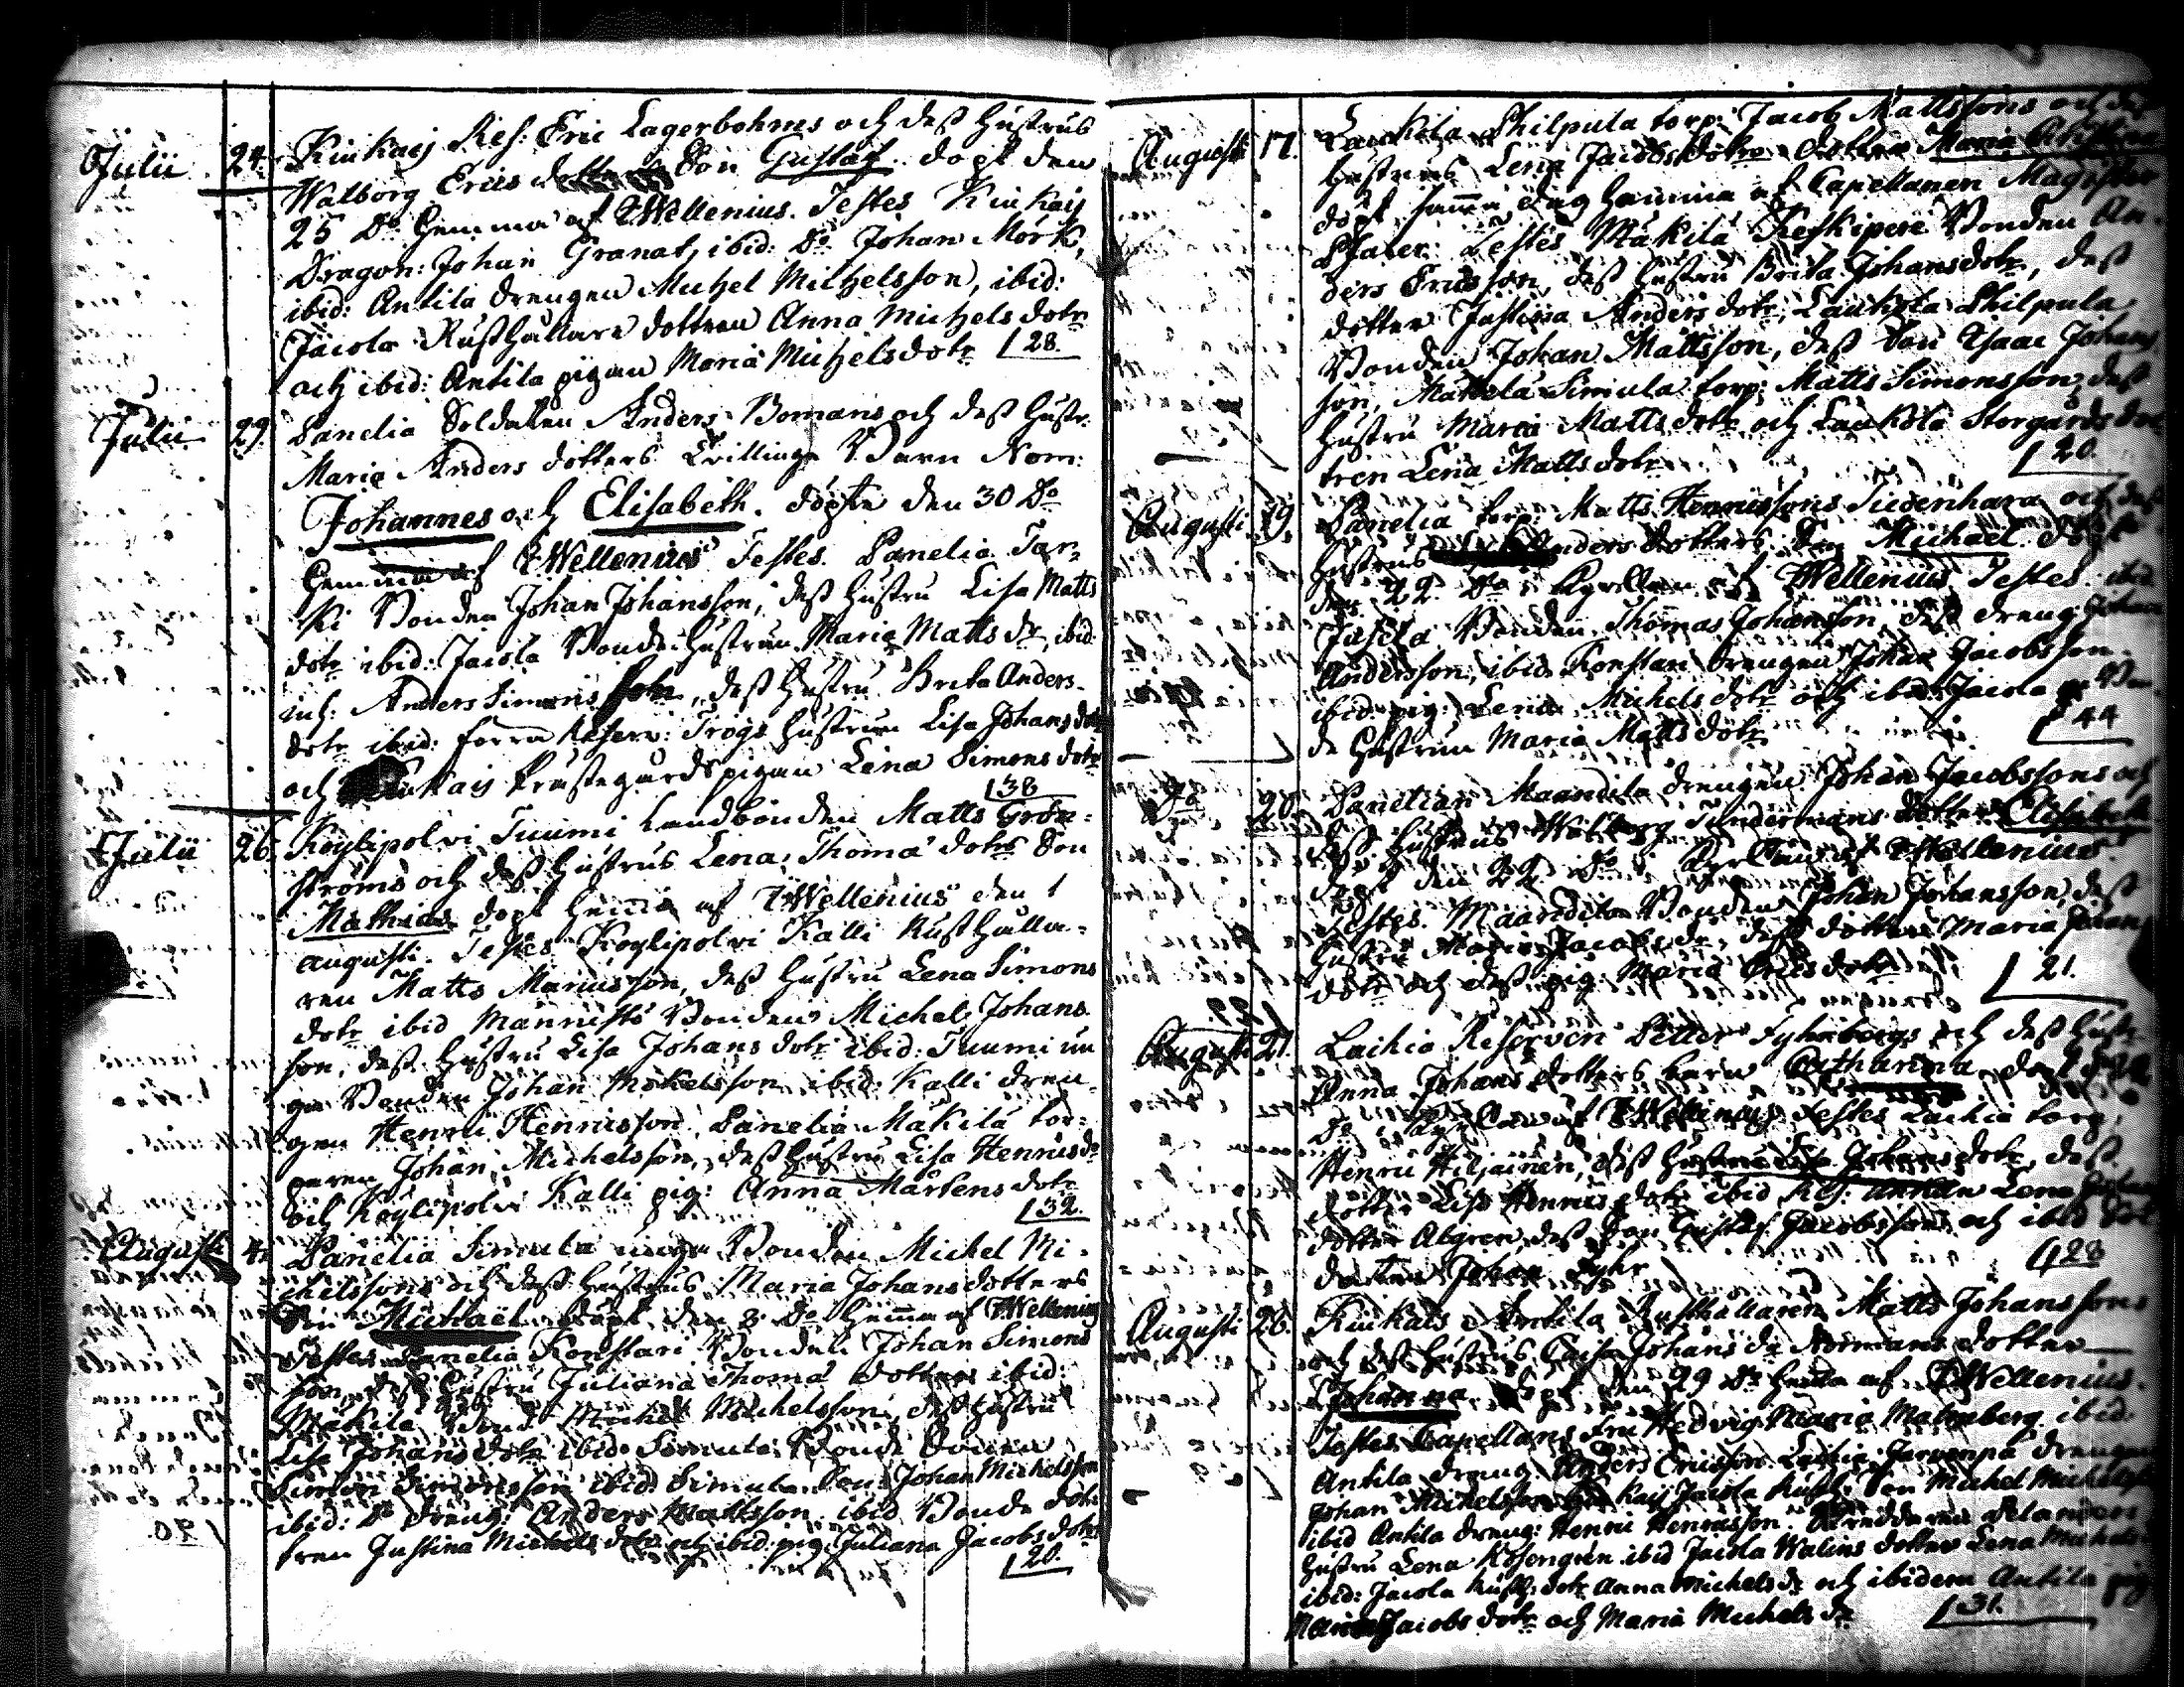 Julii 24. Kiukais Res: Eric Lagerbohms och dess hustrus
Walborg Erics dotters Son Gustaf. döpt den
25 Do hemma af TWellenius. Testes Kiukais
Dragon: Johan Granat, ibid: Do Johan Mörk,
ibid: Antila drengen Michel Michelsson, ibid:
Jacola Rusthållare dottren Anna Michels dotr
och ibid: Antila pigan Maria Michelsdotr 28.
Julii 29. Panelia Soldaten Anders Bomans och dess hustr.
Maria Anders dotters Tvillinge Barn Nom:
Johannes och Elisabeth. döpte den 30 Do
hemma af TWellenius Testes Panelia Tar-
ki Bonden Johan Johansson, dess hustru Lisa Matts
dotr ibid: Jacola Bonde hustrun Maria Matts dr, ibid
inh: Anders Simons Sohn, dess hustru Brita Anders
dotr ibid: förra Reserv: Trogs hustrun Lisa Johans dotr
och Kiukais Prästegårds pigan Lena Simons dotr
38
Julii 26. Köylipolvi Tuumi Landbonden Matts Grön-
ströms och dess hustrus Lena Thomæ dotrs Son
Mathias döpt hema af TWellenius den 1
augusti. Testes Köylipolvi Kalli Rusthålla-
ren Matts Mariusson, dess hustru Lena Simons
dotr ibid Mannistö Bonden Michel Johans
son, dess hustru Lisa Johans dotr ibid: Tuumi un
ge Bonden Johan Mickelsson ibid: Kalli dren-
gen Henric Henricsson, Panelia Mäkilä tor-
paren Johan Michelsson, dess hustru Lisa Henricsdr
och Köylipolvi Kalli pig: Anna Mårtens dotr
32.
Augusti Panelia Simula unge Bonden Michel Mi-
chelssons och dess hustrus Maria Johans dotters
Son Michael döpt den 3 Do hemma af TWellenius
Testes Panelia Konstari Bonden Johan Simons
son, dess hustru Juliana Thomæ dotter ibid:
Mäkilä Bond: Michel Michelsson, dess hustru
Lisa Johans dotr ibid: Simula Bonde Sonen
Simon Simonsson ibid: Simula Son: Johan Michelsson
ibid: Do dreng: Anders Mattsson ibid Bonde dot-
tren Justina Michels dotr och ibid: pig: Juliana Jacobs dotr
20.
Augusti 17. Laukola Philpula torp: Jacob Mattssons och dess
hustrus Lena Jacobs dotrs dotter Maria
döpt samma dag hemma af Capellanen Magister
Pfaler. Testes Mäkilä Keskipere Bonden An-
ders Ericsson, dess hustru Brita Johansdotr, dess
dotter Justina Anders dotr, Laukola Philpula
Bonden Johan Mattsson, dess Son Isaac Johans
son, Mattela Simula torp: Matts Simonsson, dess
hustru Maria Matts dotr och Laukola Storgårds dot
tren Lena Matts dotr
20.
Augusti 19. Panelia torp: Matts Henricssons Sudenhara och dess
hustrus Anders dotters Son Michael döpt
den 22 Do i Kyrckan af TWellenius Testes ibid
Jusela Bonden Thomas Johansson, dess dreng Johan
Andersson, ibid Konstari drengen Johan Jacobsson
ibid: pig: Lena Michels dotr och ibid: Jacola Bon-
de hustrun Maria Matts dotr
44
Do 20. Panelian Maandila drengen Johan Jacobssons och
dess hustrus Walborg dotter Elisabeth
döpt den 22 Do i Kyrckan af TWellenius.
Testes. Maandila Bonden Johan Johansson, dess
hustru Maria Jacobs dr, dess dotter Maria Johans
dotr och dess pig: Maria Erics dotr
21.
Augusti 21. Laihia Reserven Petter och dess hustr.
Anna Johans dotters barn Catharina. döpt d 22
Do i Kyrckan af TWellenius Testes Laihia torp:
Henric Hiljainen, dess hustru Lisa Johans dotr, dess
dotter Lisa Henrics dotr ibid Res: Lena
dotter Algren, dess Son Gustaf Jacobsson och ibid Sol
daten Johan Fyhr
28
Augusti 26. Kiukais Antila Rusthållaren Matts Johanssons
och dess hustrus Caisa Johans dr Normans dotter
Johanna döpt den 29 Do hema af TWellenius.
Testes Capellans Fru Hedvig Maria Malmberg ibid:
Antila dreng Anders Ericsson Laihia Jarvenpä drengen
Johan Mickelsson Kiukais Jacola Rusth: Son Michel Michelss
ibid Antila dreng: Henric Henricsson Selanders
hustru Lena Kosengren ibid Jacola Walins dotter Lena Michels
ibid: Jacola Rusth: dotr Anna Michels dr och ibidem Antila pig
Maria Jacobs dotr och Maria Michels dr 31.